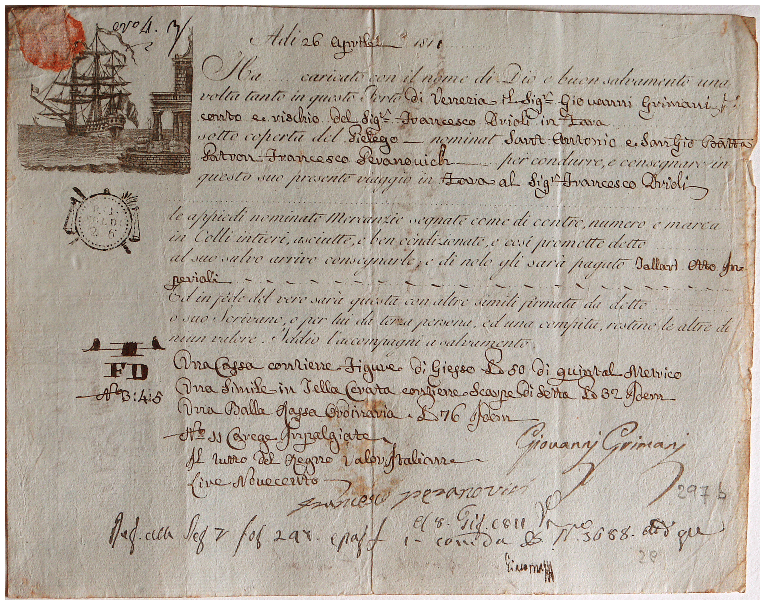 Adi 26 Aprile 1811
Ha caricato con il nome di Dio e buon salvamento una
volta tanto in questo Porto di Venezia il Sigr. Giovanni Grimani pr.
conto e rischio del Sigr. Francesco Brioli in Zara
sotto coperta del Pielego nominat Sant Antonio e San Gio Batta
Patron Francesco Peranovich per condurre, e consegnare in
questo suo presente viaggio in Zara al Sigr. Francesco Brioli
le appiedi nominate Mercanzie segnate come di contro, numero e marca
in Colli intieri, asciutte, e ben condizionate, e così promette detto
al suo salvo arrivo consegnarle, e di nolo gli sarà pagato Tallari Otto Im
periali
Ed in fede del vero sarà questa con altre simili firmata da detto
o suo Scrivano, o per lui da terza persona, ed una compita, restino le altre di
niun valore. Addio l'accompagni a salvamento
FD
No. 3:4:5
Una Cassa contiene Figure di Giesso L 50 di quintal Metrico
Una Simile in Tella Cerata contiene Scarpe di Setta L 32 Idem
Una Balla Rassa Ordinaria L 76 Idem
No. 11 Carege Impalgiate
Il tutto del Regno Valor Italiane
Lire Novecento
Giovanni Grimani
Francesco Peranovich
297 b
fo 297
1811
No. 3688
28